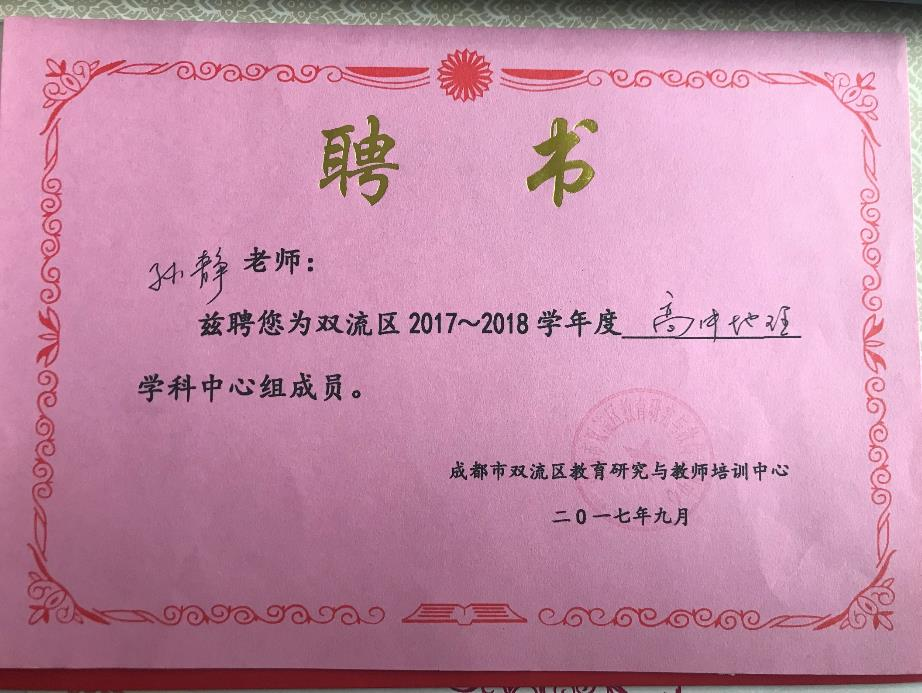 聘 书
孙静老师:
兹聘您为双流区2017～2018学年度 高中地理
学科中心组成员。
成都市双流区教育研究与教师培训中心
二〇一七年九月